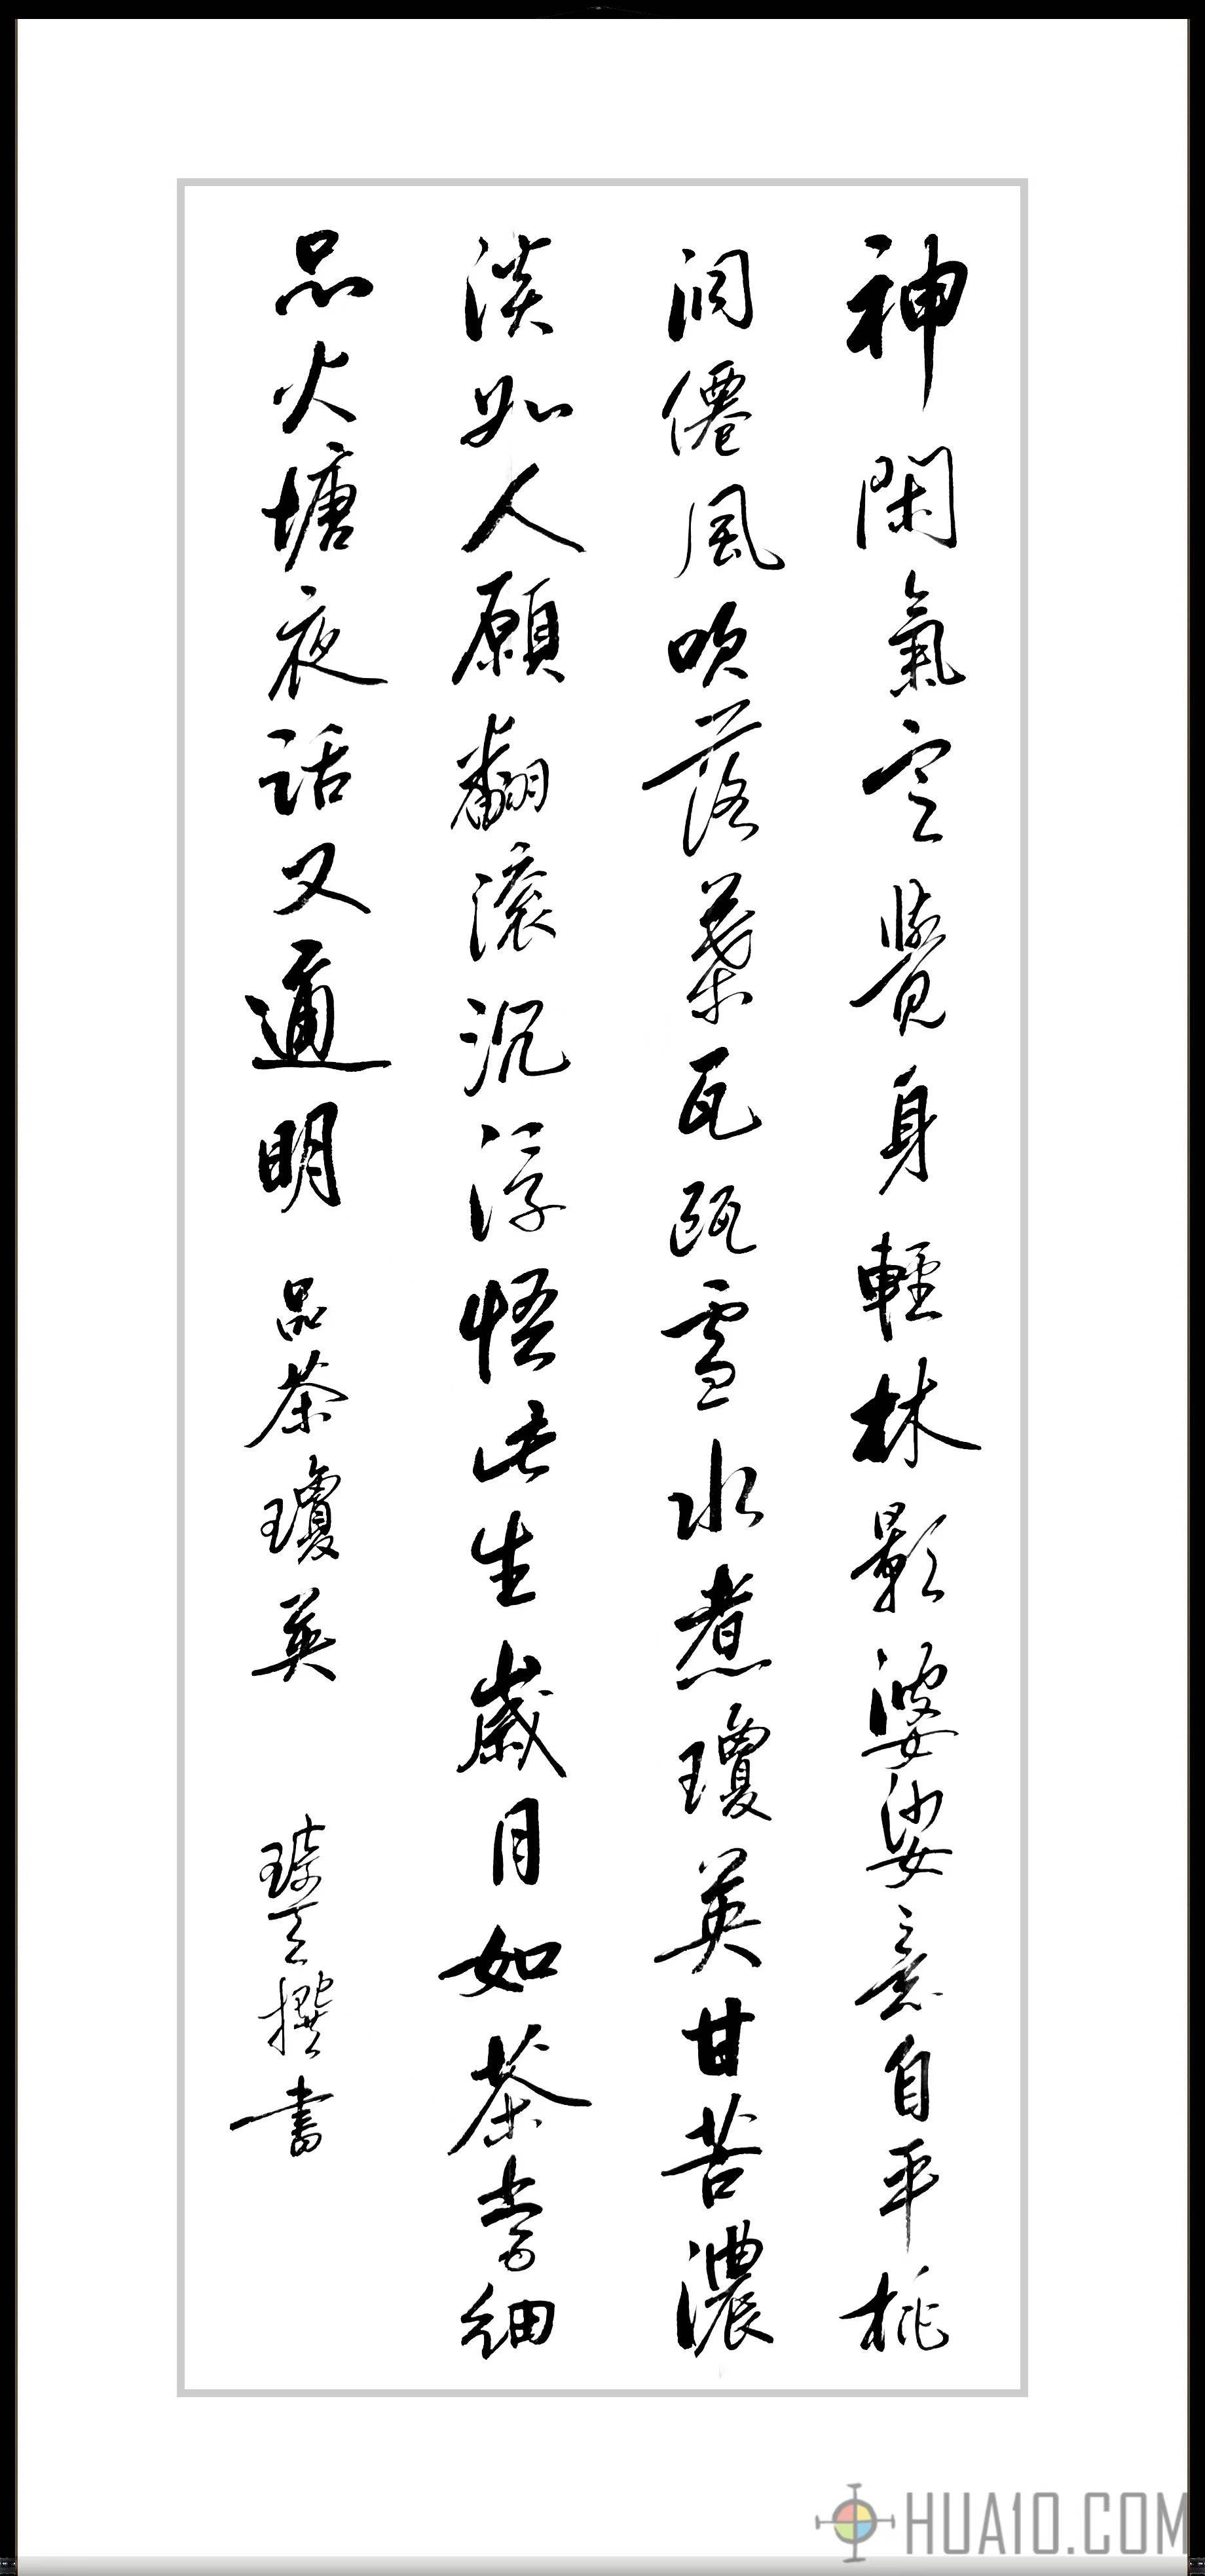 神閑氣定覺身輕林影婆娑意自平桃
澗僊風吹落葉瓦甌雪水煮瓊英甘苦濃
淡如人願翻滾沉浮悟此生歲月如茶常細
品火塘夜話又通明 品茶瓊英 撰書
HUA10.COM